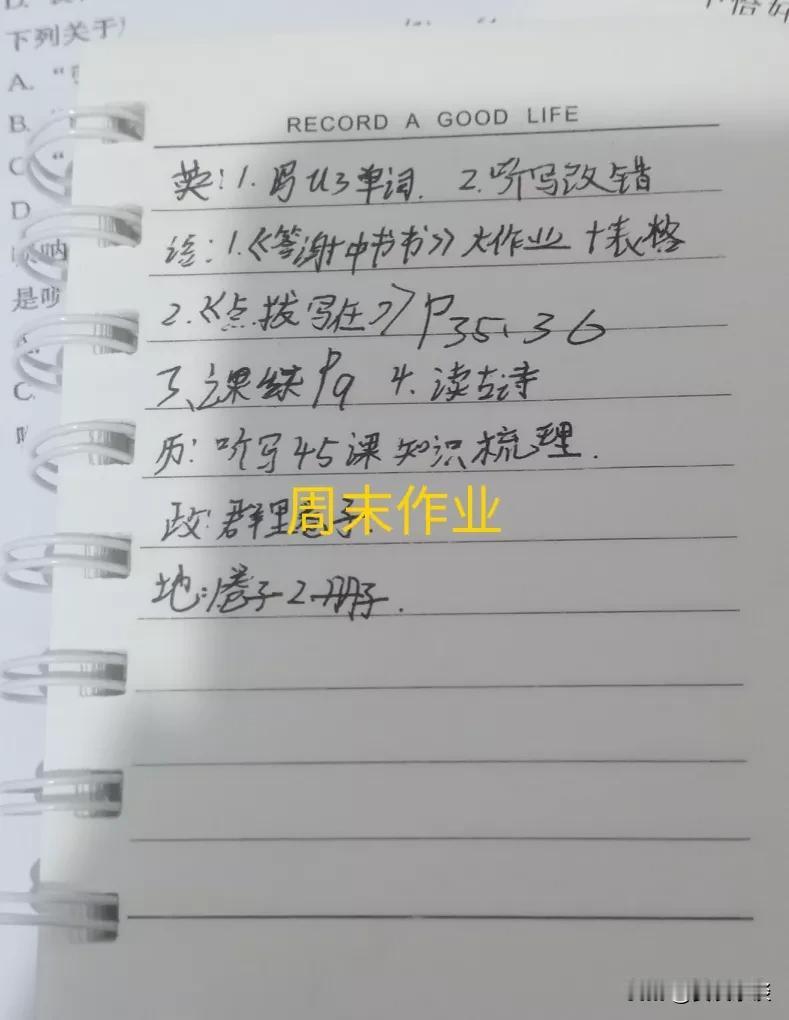 下列关于
A. “
B.
C “
D
是
C.
RECORD A GOOD LIFE
英: 1. 写U3单词. 2. 听写改错
语: 1.《答谢中书书》大作业 十表格
2.《点拨写任》P35、36
3、课练P9 4. 读古诗
历: 听写45课知识梳理.
政: 群里卷子.
周末作业
地: 1卷子2.册子.